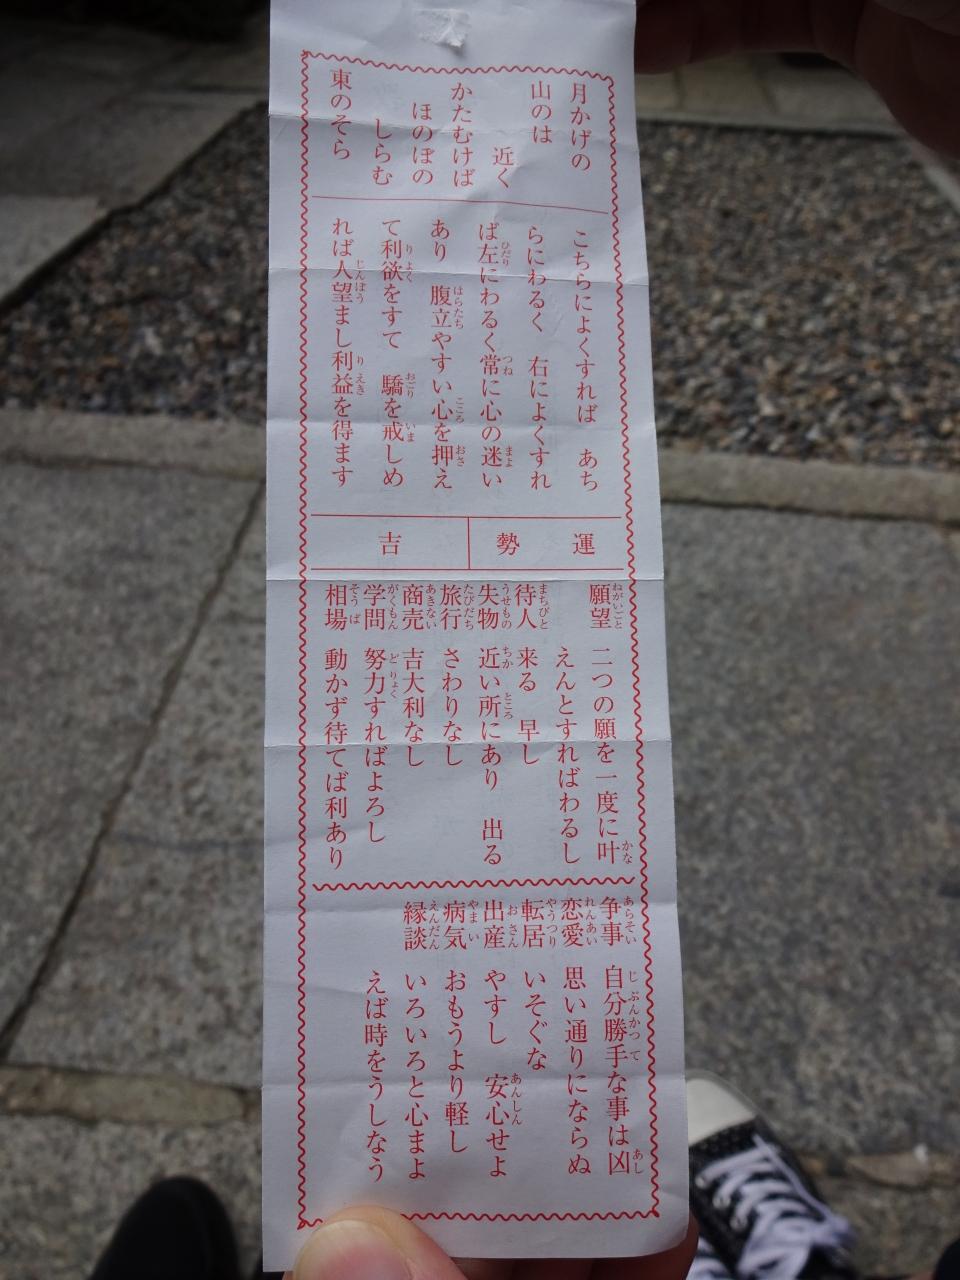 月かげの
山のは
近く
かたむけば
ほのぼの
しらむ
東のそら
こちらによくすれば あち
らにわるく 右によくすれ
ば左にわるく常に心の迷い
あり 腹立やすい心を押え
て利欲をすて 驕を戒しめ
れば人望まし利益を得ます
運勢 吉
願望 二つの願を一度に叶
えんとすればわるし
待人 来る 早し
失物 近い所にあり 出る
旅行 さわりなし
商売 吉大利なし
学問 努力すればよろし
相場 動かず待てば利あり
争事 自分勝手な事は凶
恋愛 思い通りにならぬ
転居 いそぐな
出産 やすし 安心せよ
病気 おもうより軽し
縁談 いろいろと心まよ
えば時をうしなう